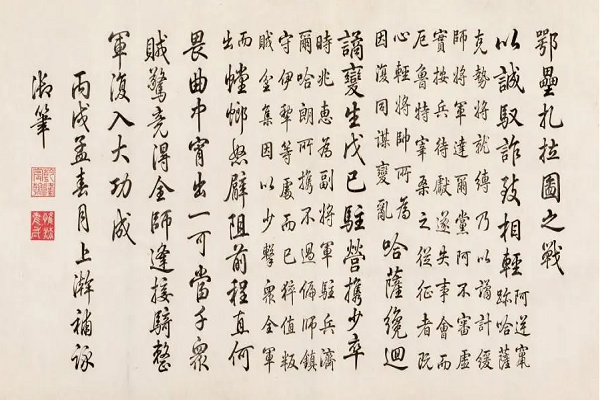 鄂壘扎拉圖之戰
以誠馭詐致相輕
阿逆竄
跡哈薩
克勢將就縛乃以譎計緩
師將軍達爾黨阿不審虛
實按兵待獻遂失事會而
厄魯特宰桑之從征者既
心輕將帥所為
因復同謀變亂
哈薩纔迴
譎變生戊己駐營攜少卒
時兆惠為副將軍駐兵濟
爾哈朗所攜不過偏師鎮
守伊犂等處而已猝值叛
賊坌集因以少擊眾全軍
而
出
螳螂怒臂阻前程直何
畏曲中宵出一可當千眾
賊驚竟得全師逢接騎整
軍復入大功成
丙戌孟春月上澣補詠
御筆